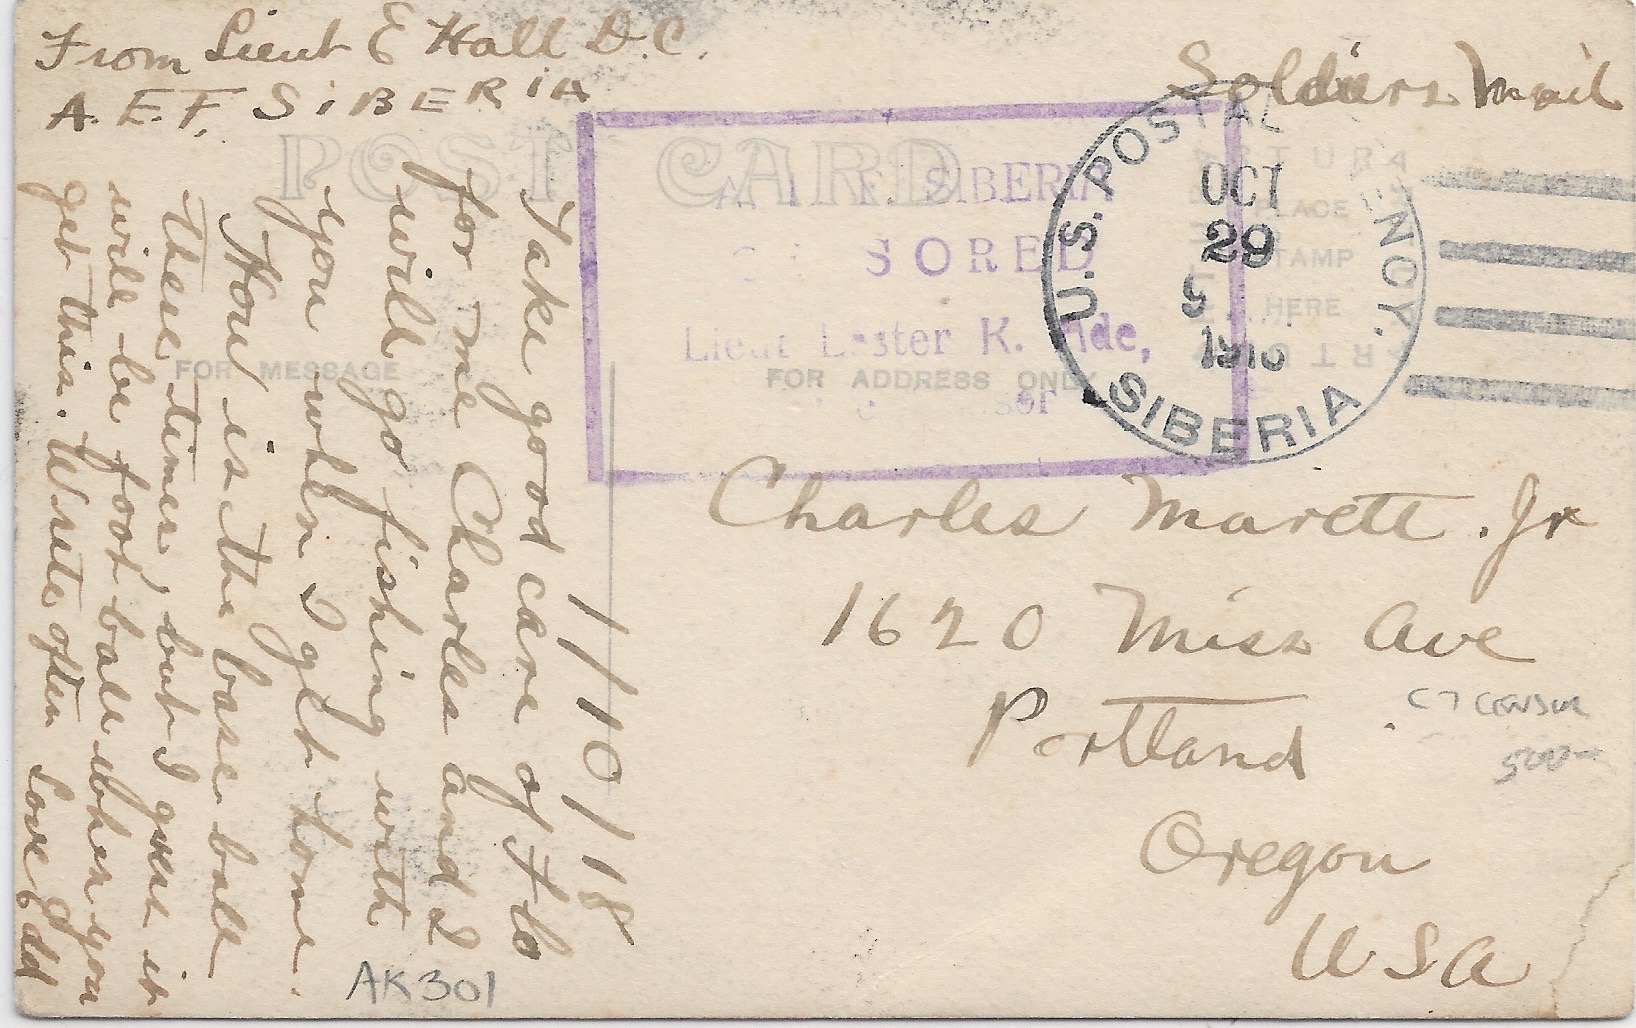 From Lieut E Hall D.C.
A.E.F. SIBERIA
Soldiers Mail
POST CARD
FOR MESSAGE
FOR ADDRESS ONLY
PLACE
STAMP
HERE
SIBERIA
SORED
Lieut Lester K. Ade,
U.S. POSTAL
ENCY.
SIBERIA
OCT
29
5
1/10/18
Take good care of
for me Charles and I
will go fishing with
you when I get home.
How is the base ball
these times, but I guess it
will be foot ball when you
get this. Write often Love Edd
Charles Marett. Jr
1620 Miss Ave
Portland
Oregon
USA
C7 CENSUR
AK301